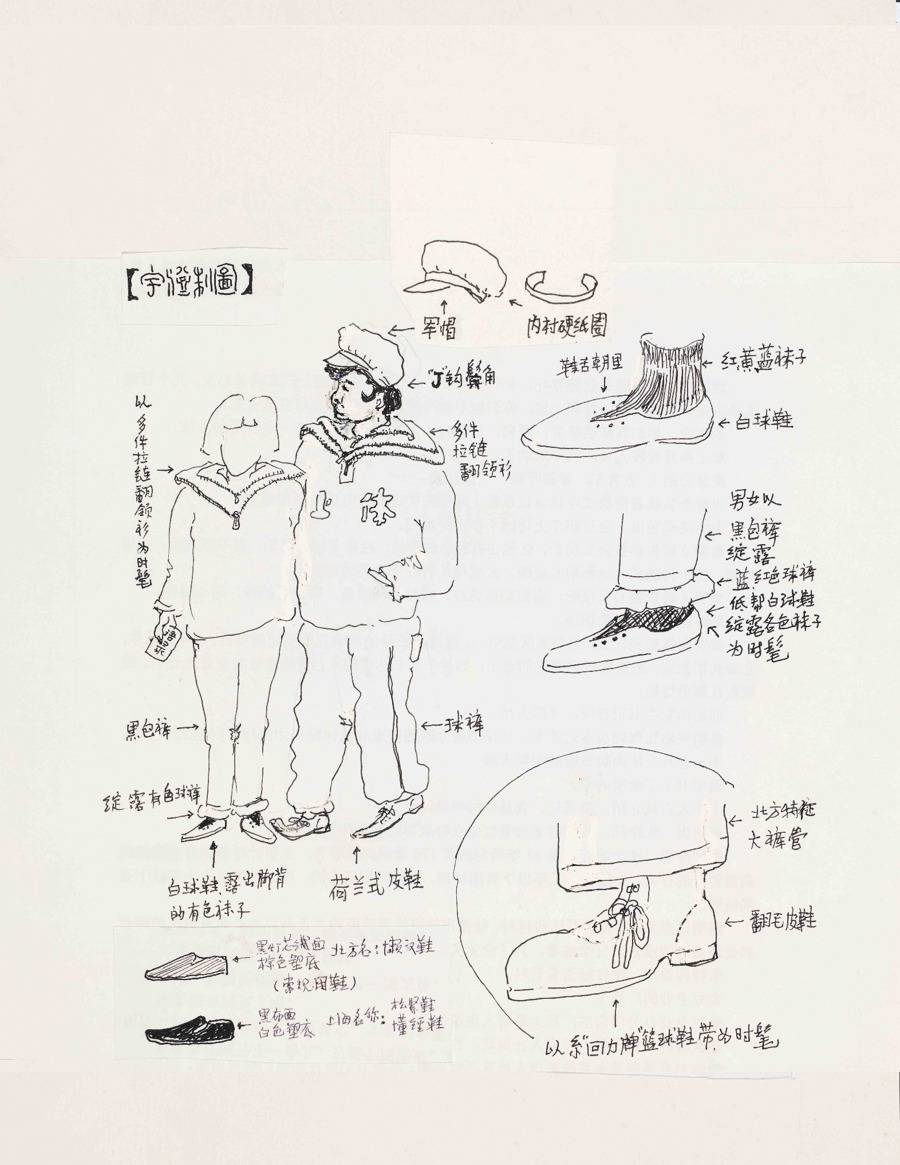 【宇澄制圖】
军帽
内衬硬纸圈
"J"钩鬓角
多件
拉链
翻领衫
以多件拉链翻领衫为时髦
鞋舌朝里
红黄蓝袜子
白球鞋
男女以
黑包裤
绽露
蓝红色球裤
低帮白球鞋
绽露各色袜子
为时髦
黑包裤
球裤
绽露有色球裤
白球鞋,露出脚背
的有色袜子
荷兰式皮鞋
北方特征
大裤管
翻毛皮鞋
以系"回力牌"篮球鞋带为时髦
黑灯芯绒面
棕色塑底
(常规用鞋)
北方名:懒汉鞋
黑布面
白色塑底
上海名称:
松紧鞋
懂经鞋